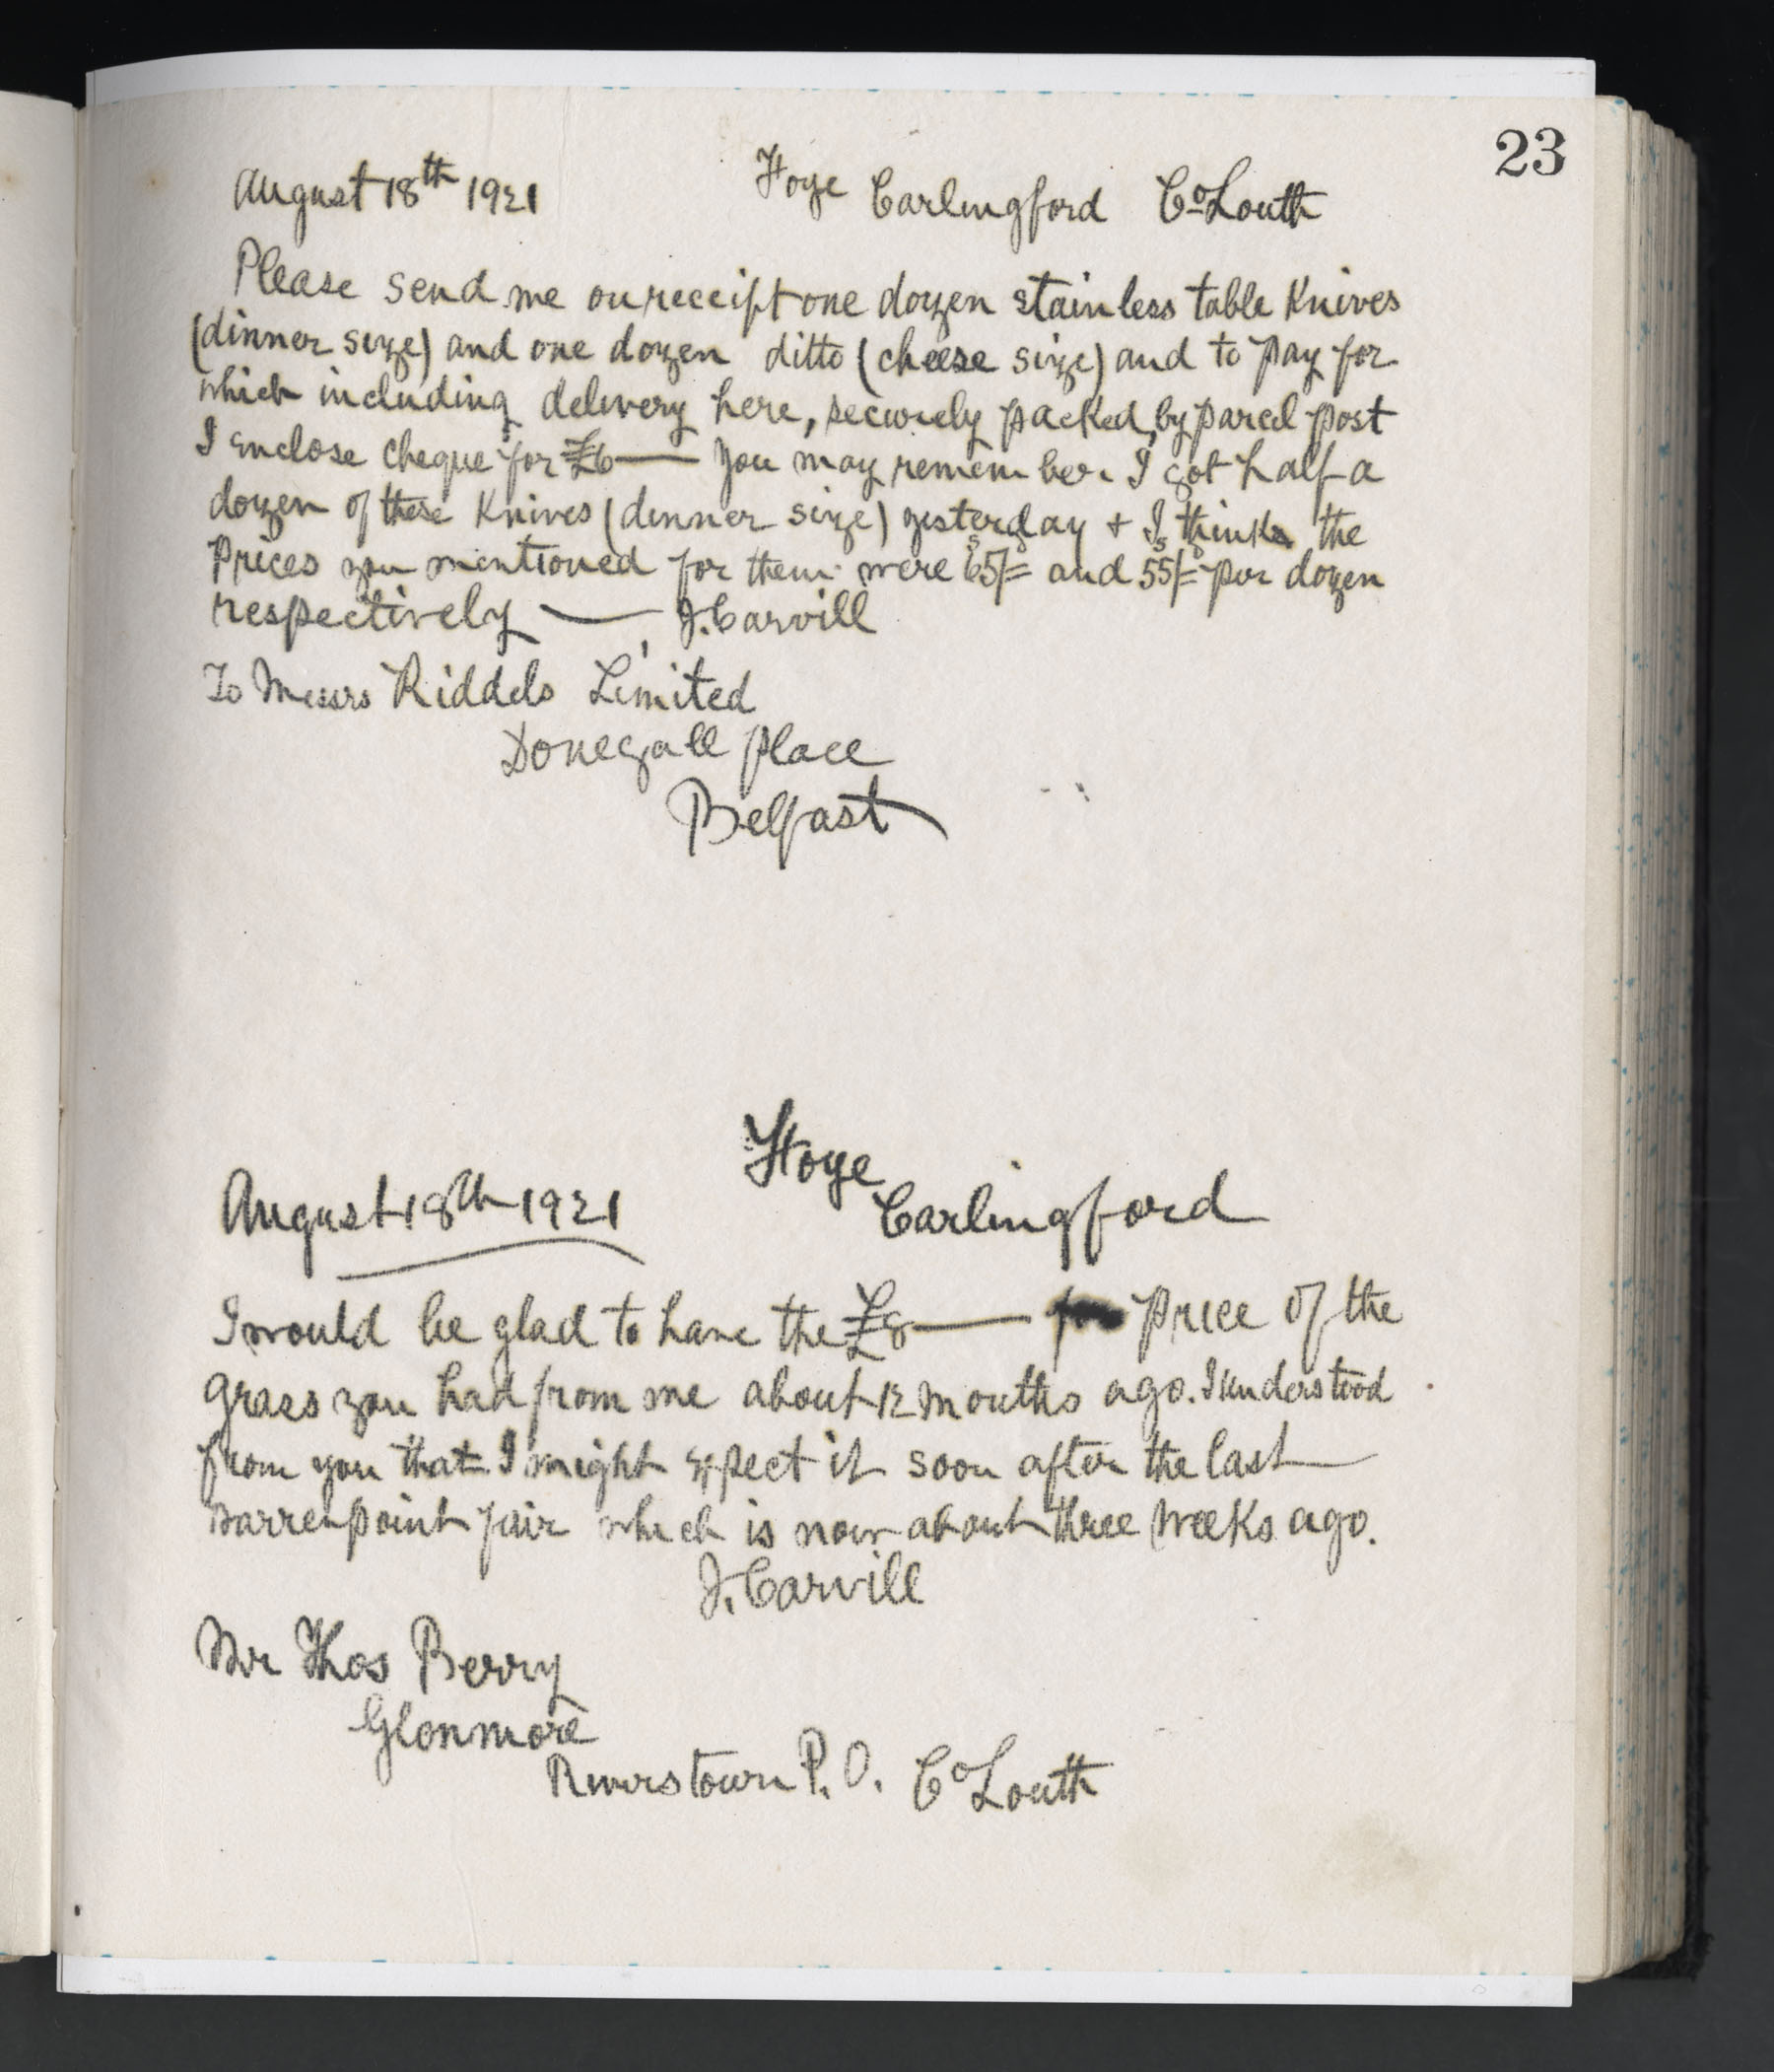 23
August 18th 1921 Foye Carlingford Co Louth
Please send me on receipt one dozen stainless table Knives
(dinner size) and one dozen ditto (cheese size) and to pay for
which including delivery here, securely packed, by parcel post
I enclose cheque for £6 — You may remember I got half a
dozen of these Knives (dinner size) yesterday + I think the
prices you mentioned for them were 65/= and 55/= per dozen
respectively — J. Carvill
To Messrs Riddels Limited
Donegall place
Belfast
Foye
August 18th 1921 Carlingford
I would be glad to have the £8 — price of the
grass you had from me about 12 months ago. I understood
from you that I might expect it soon after the last
Warrenpoint fair which is now about three weeks ago.
J. Carvill
Mr Thos Berry
Glenmore
Riverstown P.O. Co Louth